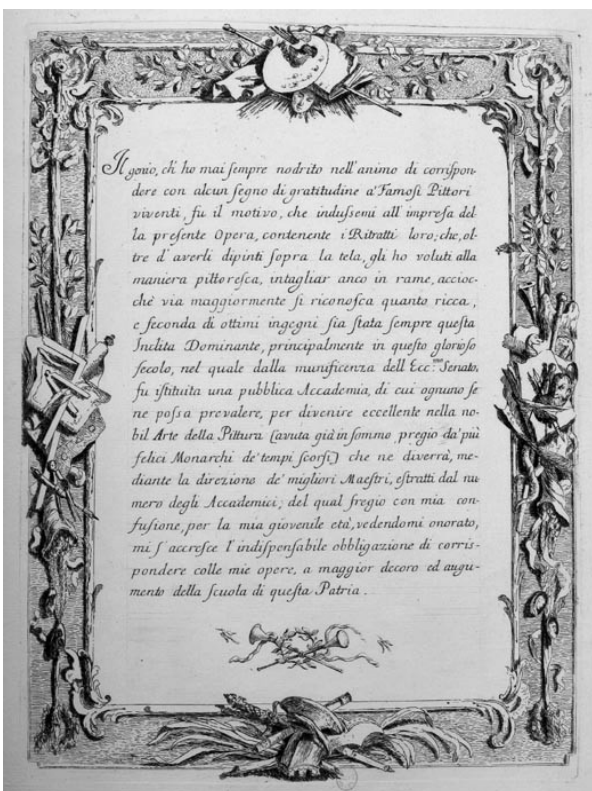 Il genio, ch' ho mai ſempre nodrito nell'animo di corriſpon-
dere con alcun ſegno di gratitudine a' Famoſi Pittori
viventi, fu il motivo, che induſsemi all' impreſa del-
la preſente Opera, contenente i Ritratti loro; che, ol-
tre d' averli dipinti ſopra la tela, gli ho voluti alla
maniera pittoreſca, intagliar anco in rame, accioc-
chè via maggiormente ſi riconoſca quanto ricca,
e feconda di ottimi ingegni ſia ſtata ſempre queſta
Inclita Dominante, principalmente in queſto glorioſo
ſecolo, nel quale dalla munificenza dell' Ecc.mo Senato,
fu iſtituita una pubblica Accademia, di cui ognuno ſe
ne poſsa prevalere, per divenire eccellente nella no-
bil Arte della Pittura (avuta già in ſommo pregio da' più
felici Monarchi de' tempi ſcorſi) che ne diverrà, me-
diante la direzione de' migliori Maeſtri, eſtratti dal nu
mero degli Accademici; del qual fregio con mia con-
fuſione, per la mia giovenile età, vedendomi onorato,
mi ſ' accreſce l' indiſpenſabile obbligazione di corriſ-
pondere colle mie opere, a maggior decoro ed augu-
mento della ſcuola di queſta Patria.